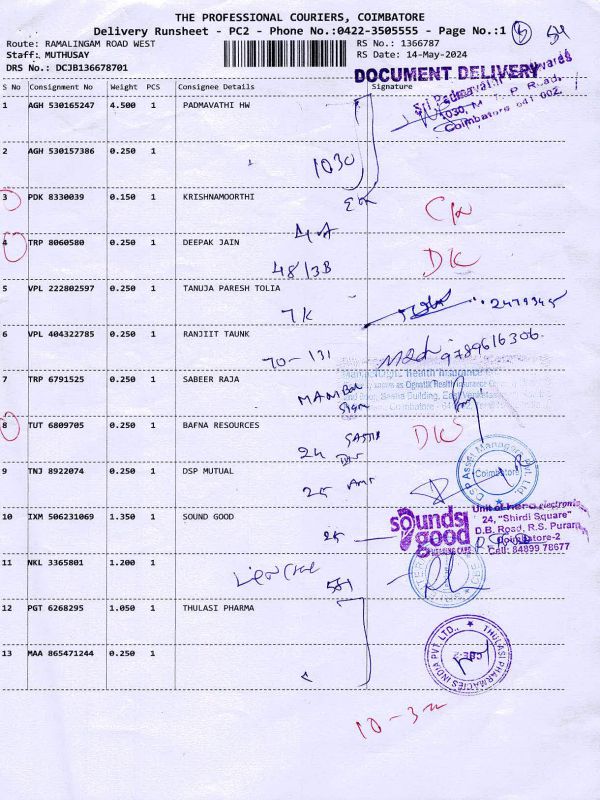 THE PROFESSIONAL COURIERS, COIMBATORE
Delivery Runsheet - PC2 - Phone No.:0422-3505555 - Page No.:1
Route: RAMALINGAM ROAD WEST
RS No.: 1366787
Staff: MUTHUSAY
RS Date: 14-May-2024
DRS No.: DCJB136678701
DOCUMENT DELIVERY
S No Consignment No Weight PCS Consignee Details Signature
Sri Padmavathi
1030, M.T.P Road,
Coimbatore 641 002
1 AGH 530165247 4.500 1 PADMAVATHI HW
2 AGH 530157386 0.250 1
1030
3 PDK 8330039 0.150 1 KRISHNAMOORTHI
4 TRP 8060580 0.250 1 DEEPAK JAIN
DK
48/3B
5 VPL 222802597 0.250 1 TANUJA PARESH TOLIA
2479345
7K
6 VPL 404322785 0.250 1 RANJIIT TAUNK
9789616306
70-131
Health Insurance
7 TRP 6791525 0.250 1 SABEER RAJA
Coimbatore
8 TUT 6809705 0.250 1 BAFNA RESOURCES
DK
24
9 TNJ 8922074 0.250 1 DSP MUTUAL
DSP Asset Managers Pvt. Ltd.
Coimbatore
25
10 IXM 506231069 1.350 1 SOUND GOOD
sounds good
HEARING CARE
Unit of hero electronic
24, "Shirdi Square"
D.B. Road, R.S. Puram
Coimbatore-2
Cell: 84899 78677
11 NKL 3365801 1.200 1
12 PGT 6268295 1.050 1 THULASI PHARMA
THULASI PHARMACIES INDIA PVT. LTD.,
CBE-2
13 MAA 865471244 0.250 1